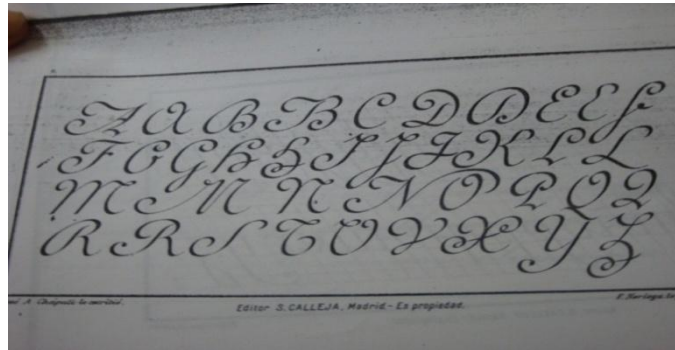 A A B B C D D E E F
F G G H H I J J K L L
M N N N N O P P Q Q
R R S T U V X Y Z
A. Chápuli lo escribió.
Editor S. CALLEJA, Madrid - Es propiedad.